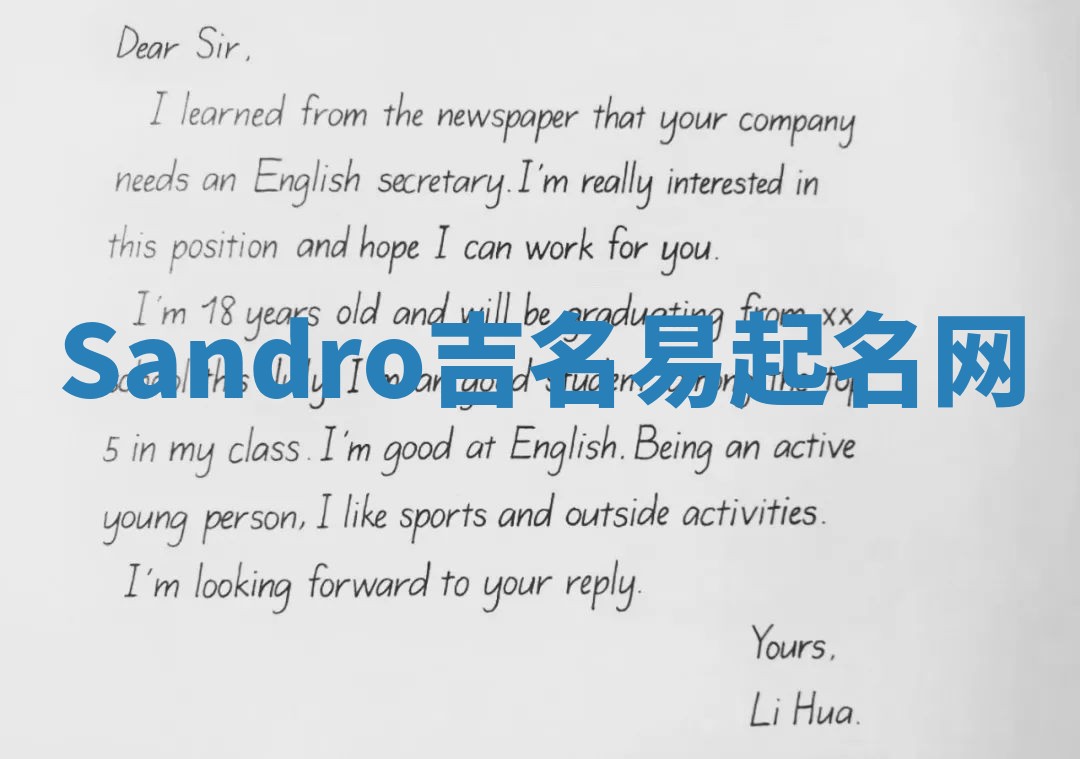 Dear Sir,
I learned from the newspaper that your company
needs an English secretary. I'm really interested in
this position and hope I can work for you.
I'm 18 years old and will be graduating from xx
Sandro吉名易起名网
school this July. I'm a good student the top
5 in my class. I'm good at English. Being an active
young person, I like sports and outside activities.
I'm looking forward to your reply.
Yours,
Li Hua.